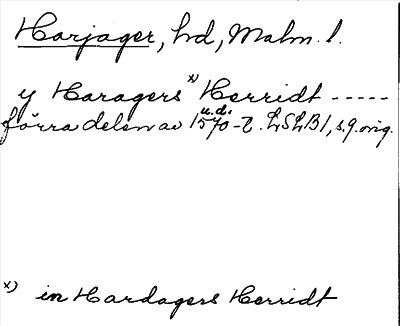 Harjager, hd, Malm. l.
y Haragers x) Herridt -----
u.d.
förra delen av 1570-t. LSLB1, s.9. orig.
x) in Hardagers Herridt